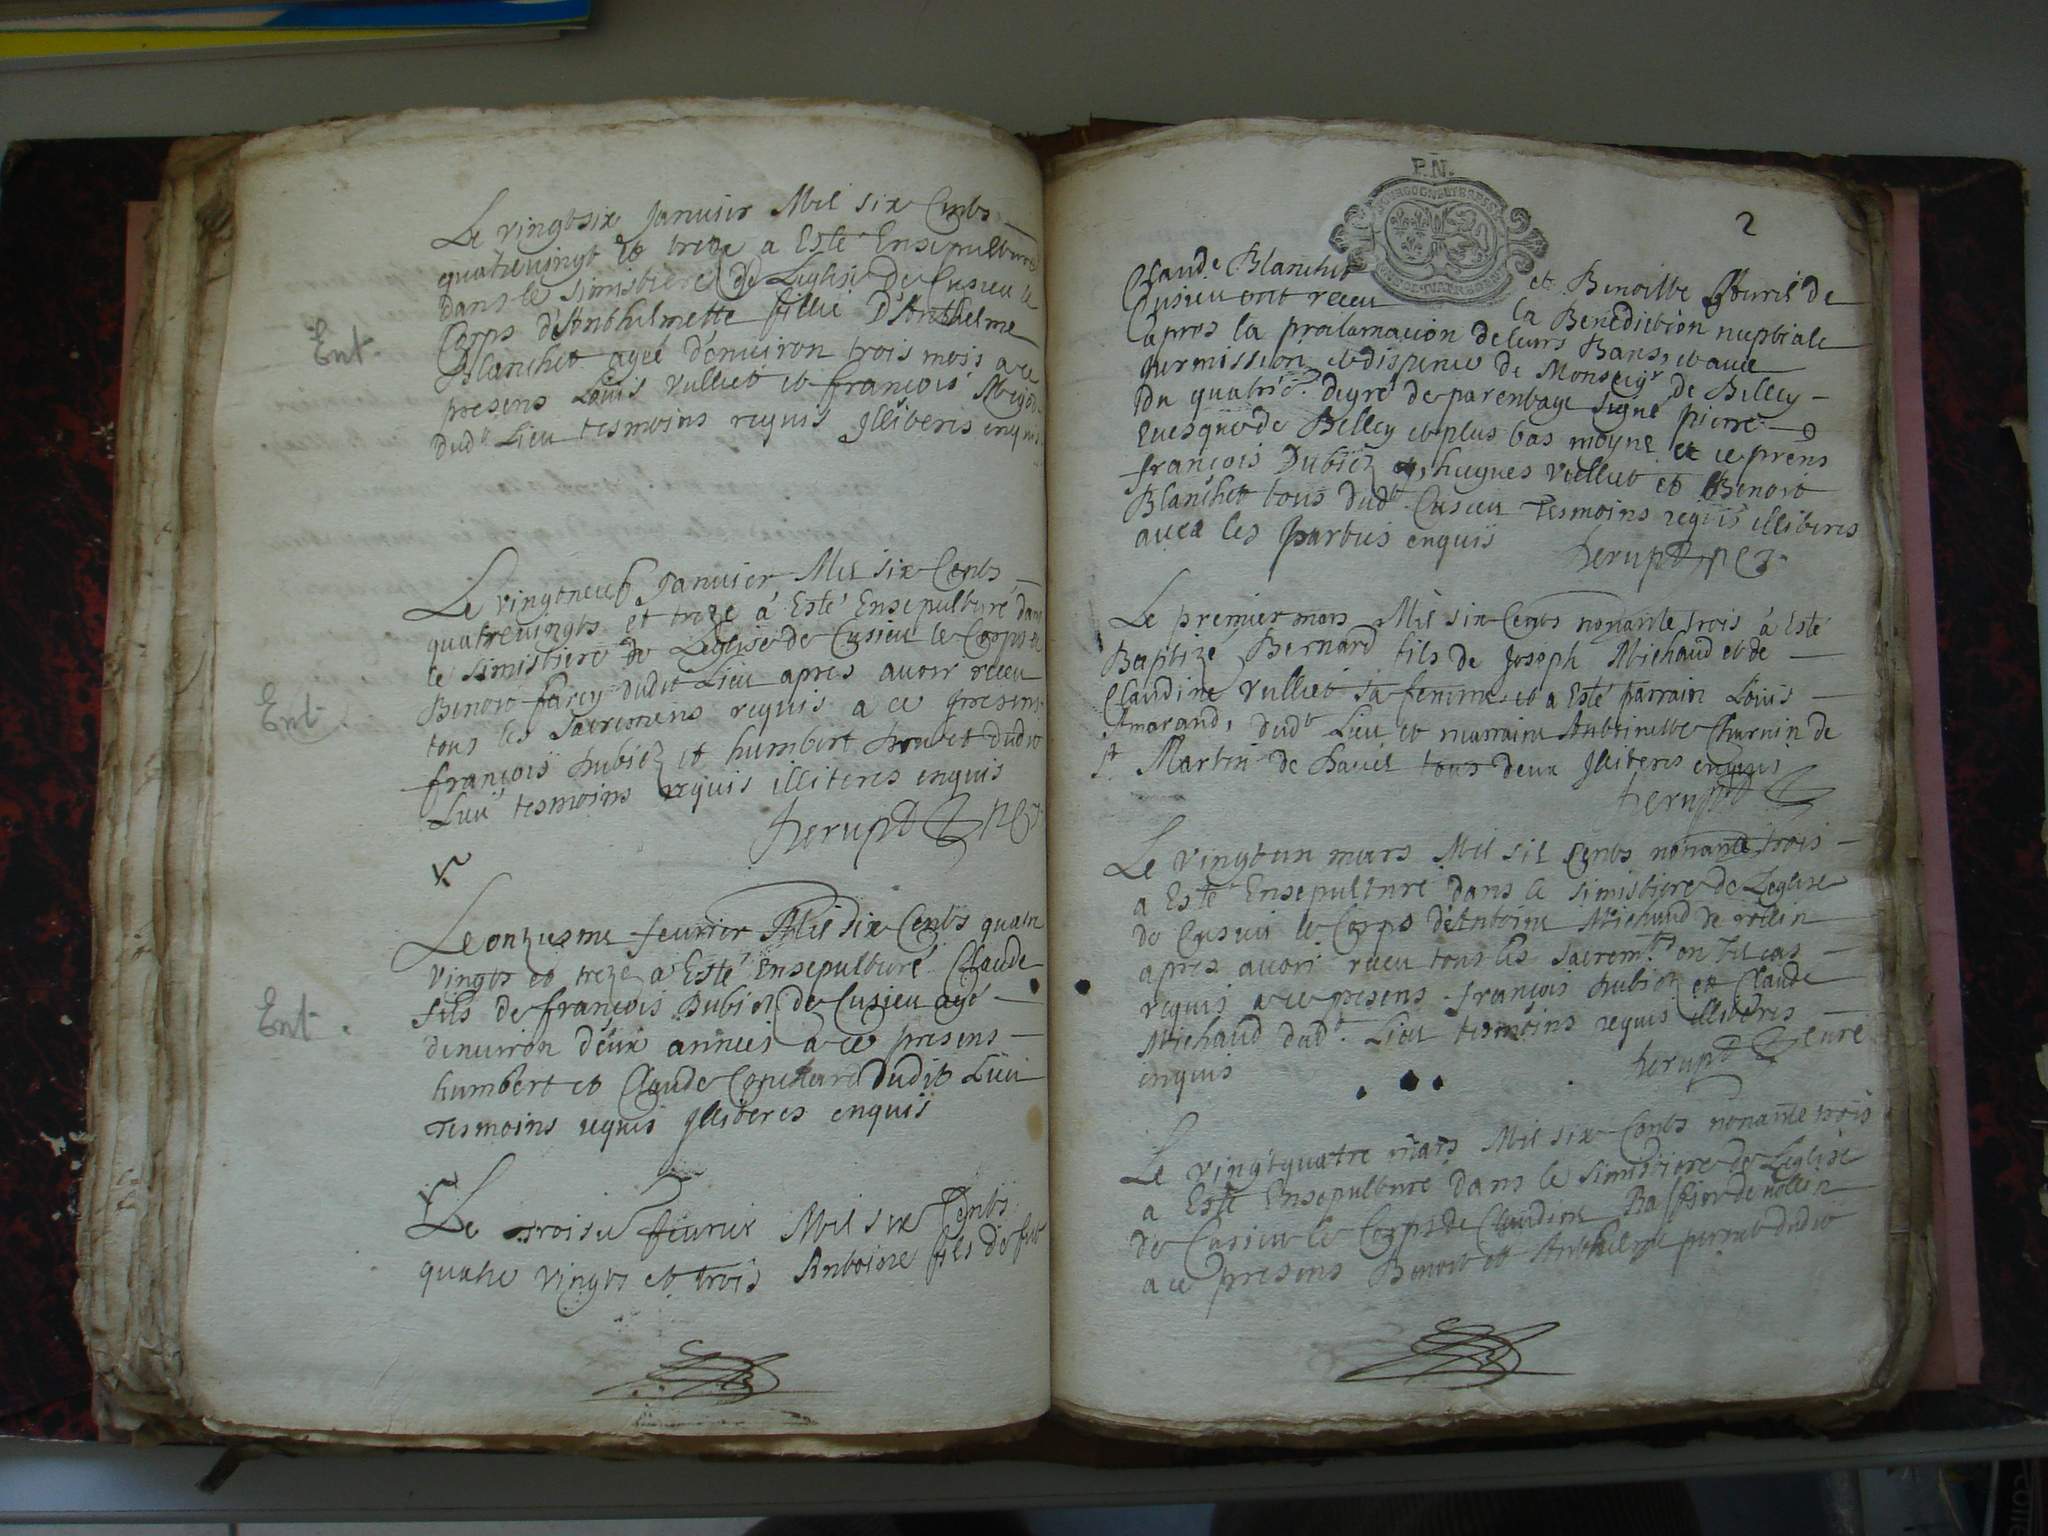 Le vingtsix Janvier Mil six Cents
quatrevingt et treze a Esté Ensepulturé
dans le simistiere de Leglise de Cusieu le
Corps d'Anthelmette fillie D'Anthelme
Blanchet agée d'enuiron trois mois a ce
presens Louis Vulliet et françois
Dudt Lieu tesmoins requis Jlliteres enquis
Ent.
Le vingtneuf Janvier Mil six Cents
quatrevingts et treze á Esté Ensepulturé dans
le simistiere de Leglise de Cusieu le Corps de
Benoit farcy dudit Lieu apres avoir receu
tous les sacremens requis a ce presens
françois Dubiez et humbert dudit
Lieu tesmoins requis illiteres enquis
Ent.
Le onziesme feurier Mil six Cents quatre
vingts et treze a Esté Ensepulturé Claude
fils de françois Dubiez de Cusieu agé
denuiron deux années a ce presens
humbert et Claude dudit Lieu
Tesmoins requis Jlliteres enquis
Ent.
Le troisie feurier Mil six Cents
quatre vingts et trois Antoine fils de feu
P.N.
2
Claude Blanchet et Benoitte de
Cusieu ont receu la Benediction nuptiale
apres la proclamation de leurs Bans, et avec
permission et dispence de Monseigr de Belley
du quatrie. degré de parentage signé pierre
Euesque de Belley et plus bas moyne et ce prens
françois Dubiez hugues Vulliet et Benoit
Blanchet tous dudt Cusieu Tesmoins requis illiteres
avec les parties enquis
Le premier mars Mil six Cents nonante trois á Esté
Baptizé Bernard fils de Joseph Michaud et de
Claudine Vulliet sa femme et a Esté parrain Louis
dudt Lieu et marraine Anthoinette Charnin de
st Martin de Bavel tous deux Jlliteres enquis
Le vingtun mars Mil six Cents nonante trois
a Esté Ensepulturé dans le simistiere de Leglise
de Cusieu le Corps d'Antoine Michaud de
apres avoir receu tous les sacremts. en tel cas
requis a ce presens françois Dubiez et Claude
Michaud dudt. Lieu tesmoins requis illiteres
enquis
curé
Le vingtquatre mars Mil six Cents nonante trois
a Esté Ensepulturé dans le simistiere de Leglise
de Cusieu le Corps de Claudine
a ce presens Benoit et Anthelme perret dudit